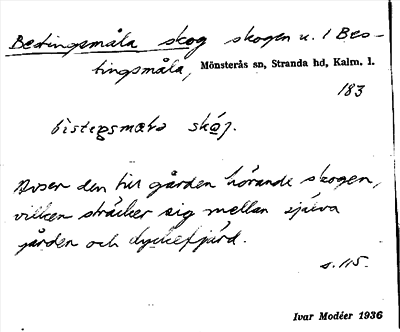 Bestingsmåla skog skogen u. 1 Bes-
tingsmåla, Mönsterås sn, Stranda hd, Kalm. l.
183
skóg.
Avser den till gården hörande skogen,
vilken sträcker sig mellan själva
gården och Lyckefjärd.
s. 115.
Ivar Modéer 1936